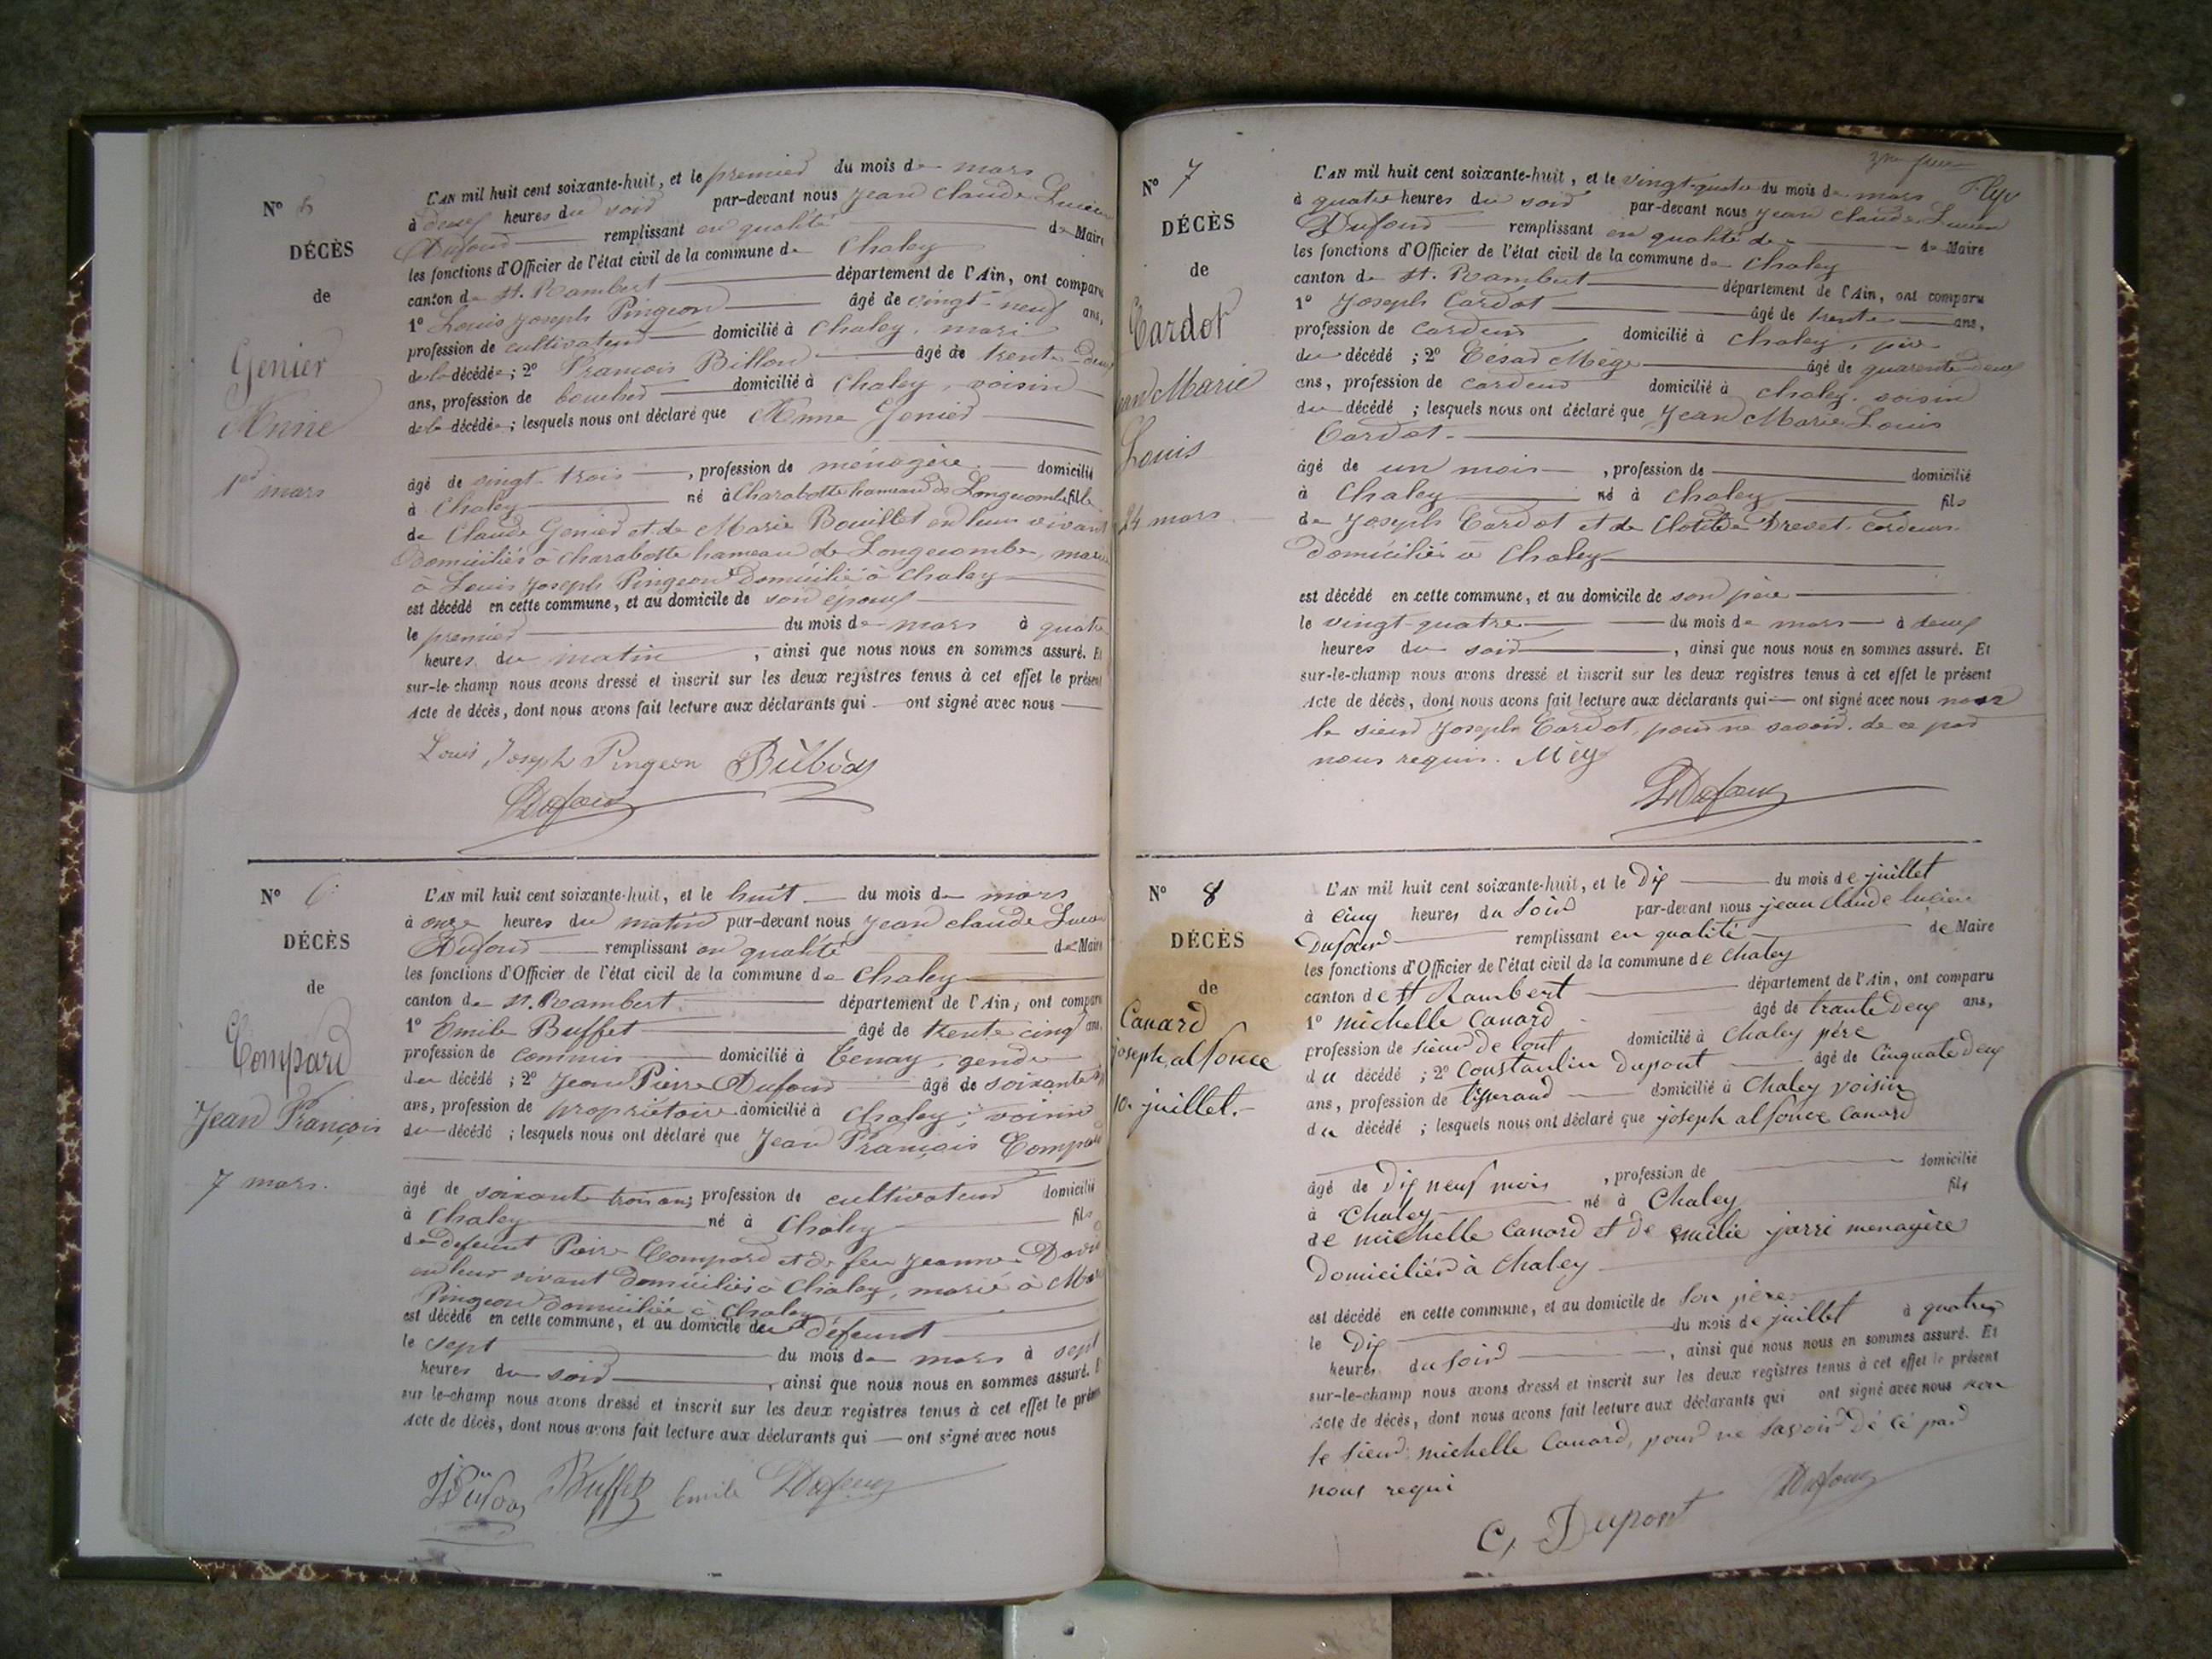 N° 5
DÉCÈS
de
Genier
Anne
1er mars
L'AN mil huit cent soixante-huit, et le premier du mois de mars
à deux heures du soir par-devant nous Jean Claude Lucien
Dufour remplissant en qualité de Maire
les fonctions d'Officier de l'état civil de la commune de Chaley
canton de St. Rambert département de l'Ain, ont comparu
1° Louis Joseph Pingeon âgé de vingt-neuf ans,
profession de cultivateur domicilié à Chaley, mari
de la décédée; 2° François Billon âgé de trente-deux
ans, profession de boucher domicilié à Chaley, voisin
de la décédée; lesquels nous ont déclaré que Anne Genier
âgé de vingt-trois, profession de ménagère domicilié
à Chaley né à Charabotte hameau de Longecombe fille
de Claude Genier et de Marie Bouillet en leur vivant
domiciliés à Charabotte hameau de Longecombe, mariée
à Louis Joseph Pingeon domicilié à Chaley
est décédé en cette commune, et au domicile de son époux
le premier du mois de mars à quatre
heures du matin, ainsi que nous nous en sommes assuré. Et
sur-le-champ nous avons dressé et inscrit sur les deux registres tenus à cet effet le présent
Acte de décès, dont nous avons fait lecture aux déclarants qui ont signé avec nous
Louis Joseph Pingeon
Dufour
N° 6
DÉCÈS
de
Compard
Jean François
7 mars.
L'AN mil huit cent soixante-huit, et le huit du mois de mars
à onze heures du matin par-devant nous Jean Claude Lucien
Dufour remplissant en qualité de Maire
les fonctions d'Officier de l'état civil de la commune de Chaley
canton de St. Rambert département de l'Ain, ont comparu
1° Emile Buffet âgé de trente cinq ans,
profession de commis domicilié à Tenay, gendre
du décédé; 2° Jean Pierre Dufour âgé de soixante
ans, profession de propriétaire domicilié à Chaley, voisin
du décédé; lesquels nous ont déclaré que Jean François Compard
âgé de soixante trois ans, profession de cultivateur domicilié
à Chaley né à Chaley fils
de defeunt Pierre Compard et de feu Jeanne David
en leur vivant domiciliés à Chaley, marié à
Pingeon domiciliée à Chaley
est décédé en cette commune, et au domicile du défeunt
le sept du mois de mars à sept
heures du soir, ainsi que nous nous en sommes assuré.
sur-le-champ nous avons dressé et inscrit sur les deux registres tenus à cet effet le présent
Acte de décès, dont nous avons fait lecture aux déclarants qui ont signé avec nous
Buffet Emile Dufour
N° 7
DÉCÈS
de
Cardot
Jean Marie
Louis
24 mars
L'AN mil huit cent soixante-huit, et le vingt-quatre du mois de mars
à quatre heures du soir par-devant nous Jean Claude Lucien
Dufour remplissant en qualité de de Maire
les fonctions d'Officier de l'état civil de la commune de Chaley
canton de St. Rambert département de l'Ain, ont comparu
1° Joseph Cardot âgé de trente ans,
profession de cardeur domicilié à Chaley, père
du décédé; 2° César Mège âgé de quarente-deux
ans, profession de cardeur domicilié à Chaley, voisin
du décédé; lesquels nous ont déclaré que Jean Marie Louis
Cardot.
âgé de un mois, profession de domicilié
à Chaley né à Chaley fils
de Joseph Cardot et de Clotilde Drevet, cardeurs
domiciliés à Chaley
est décédé en cette commune, et au domicile de son père
le vingt-quatre du mois de mars à deux
heures du soir, ainsi que nous nous en sommes assuré. Et
sur-le-champ nous avons dressé et inscrit sur les deux registres tenus à cet effet le présent
Acte de décès, dont nous avons fait lecture aux déclarants qui ont signé avec nous non
le sieur Joseph Cardot, pour ne savoir. de ce par
nous requis. Még
Dufour
N° 8
DÉCÈS
de
Canard
joseph, alfonce
10. juillet.
L'AN mil huit cent soixante-huit, et le Dix du mois de juillet
à Cinq heures du soir par-devant nous jean claude lucien
Dufour remplissant en qualité de Maire
les fonctions d'Officier de l'état civil de la commune de Chaley
canton de St Rambert département de l'Ain, ont comparu
1° michelle Canard âgé de trante Deux ans,
profession de sieur de lont domicilié à Chaley père
du décédé; 2° Constantin Dupont âgé de Cinquate Deux
ans, profession de tisserand domicilié à Chaley voisin
du décédé; lesquels nous ont déclaré que joseph alfonce Canard
âgé de Dix neuf mois, profession de domicilié
à Chaley né à Chaley fils
de michelle Canard et de emilie jarri menagère
Domiciliés à Chaley
est décédé en cette commune, et au domicile de son père
le Dix du mois de juillet à quatre
heures du soir, ainsi que nous nous en sommes assuré. Et
sur-le-champ nous avons dressé et inscrit sur les deux registres tenus à cet effet le présent
Acte de décès, dont nous avons fait lecture aux déclarants qui ont signé avec nous non
le sieur michelle Canard, pour ne savoir De ce par
nous requi
C, Dupont Dufour